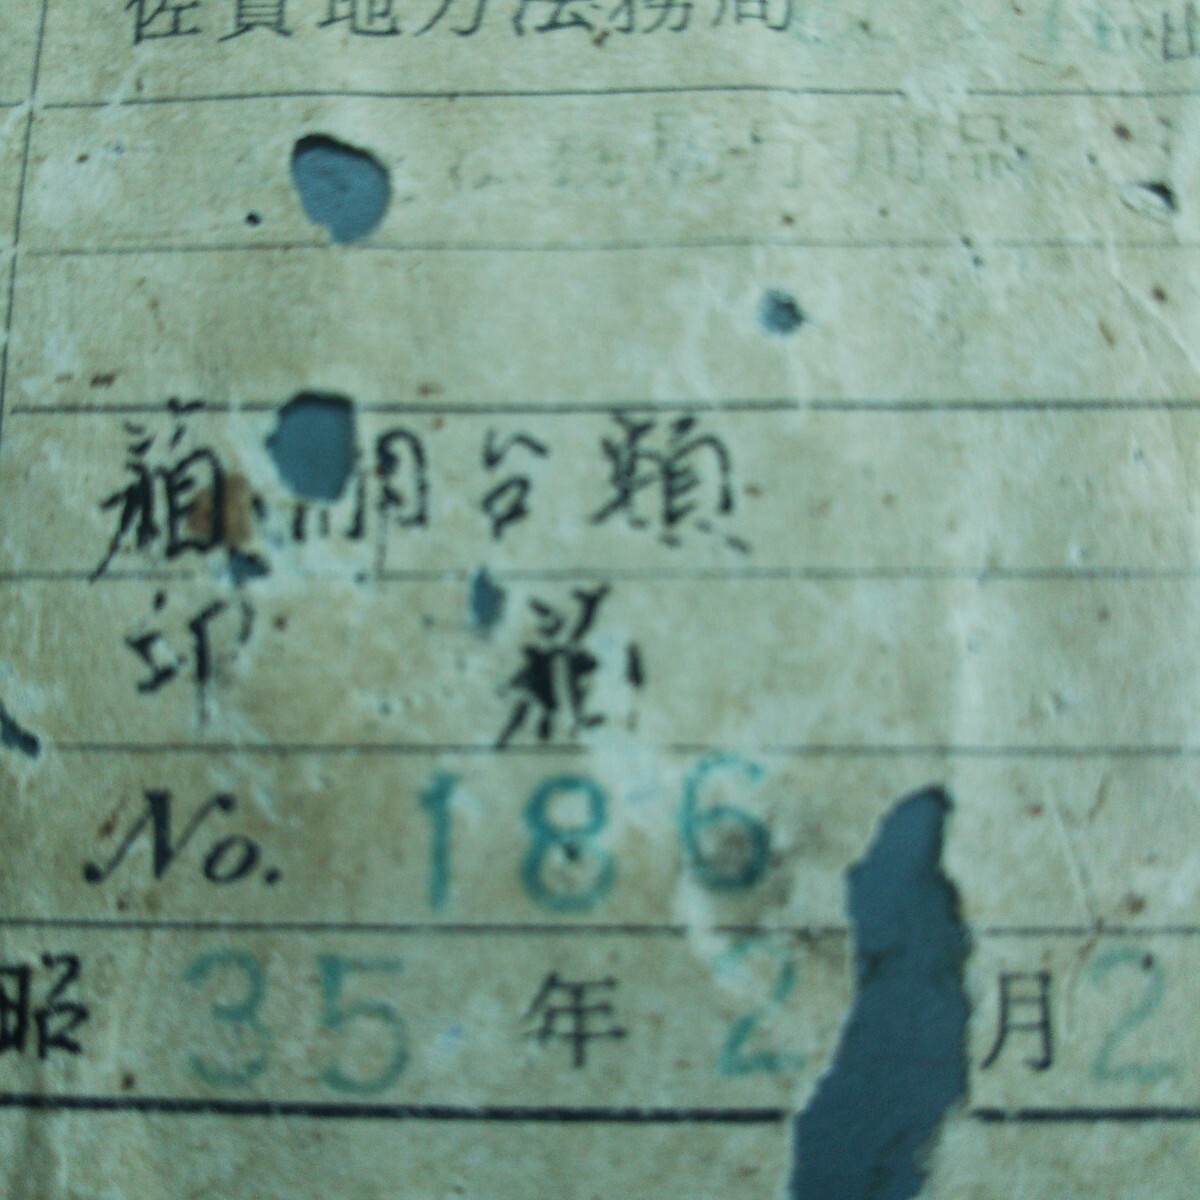 佐賀地方法務局 出
庁用品
台類
印
No. 186
昭 35 年 2 月 2